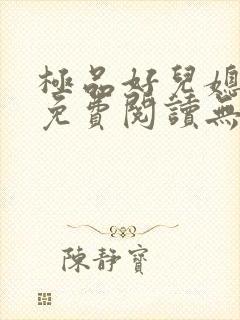 極品好兒媳
免費閱讀無
陳靜寶